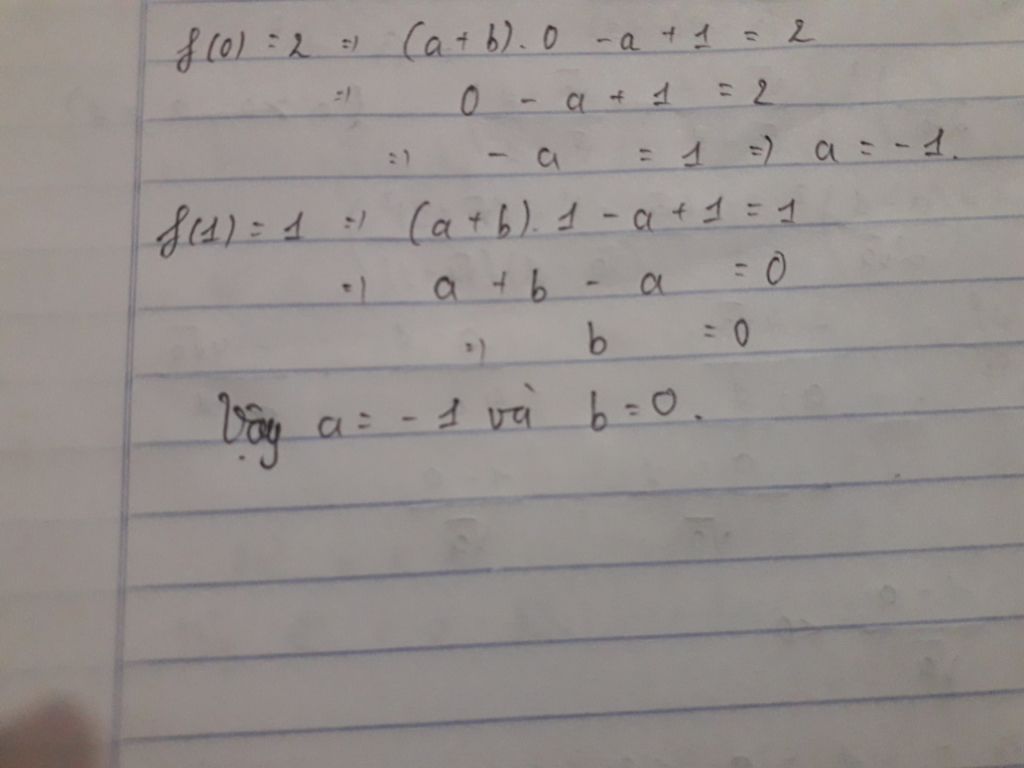 f(0) = 2 => (a + b). 0 - a + 1 = 2
=> 0 - a + 1 = 2
=> - a = 1 => a = - 1.
f(1) = 1 => (a + b). 1 - a + 1 = 1
=> a + b - a = 0
=> b = 0
Vậy a = - 1 và b = 0.